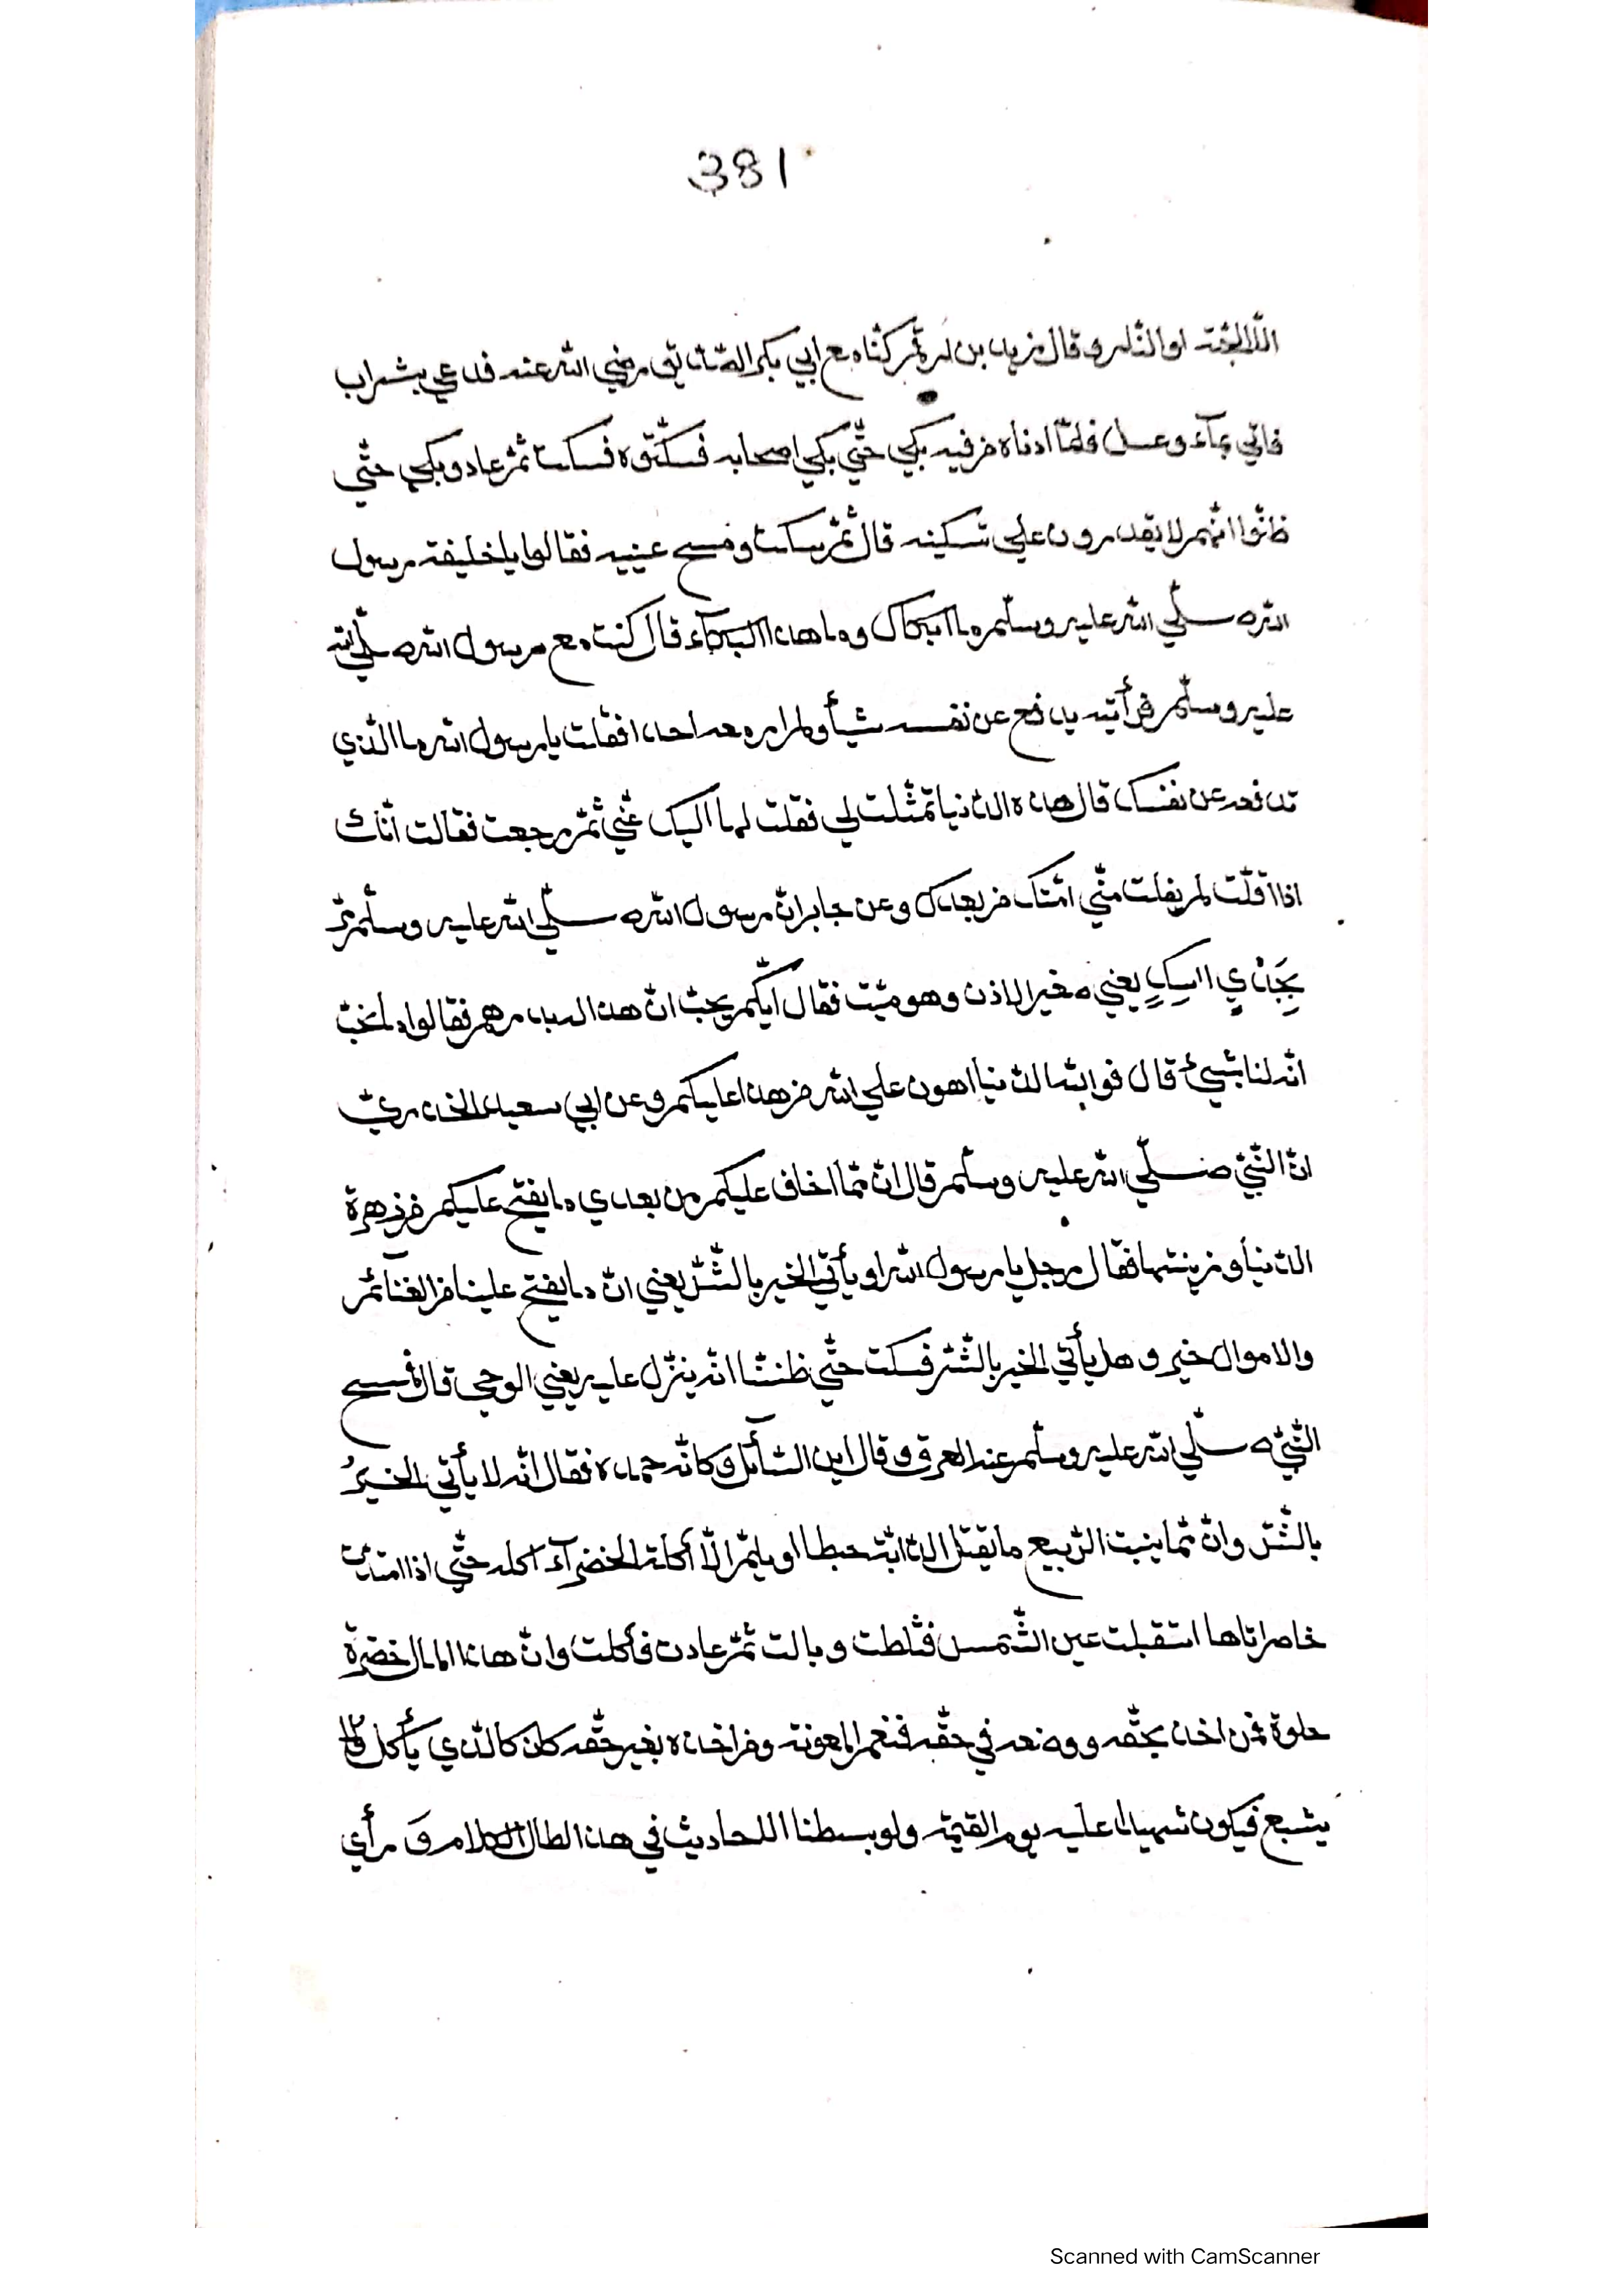 381
الّا الجنّة او النّار وقال زيد بن ارقم كنّا مع ابي بكر الصّدّيق رضي الله عنه فدعي بشراب
فاتي بمآء وعسل فلمّا ادناه من فيه بكي حتّي بكي اصحابه فسكّتوه فسكت ثمّ عاد وبكي حتّي
ظنّوا انّهم لا يقدرون علي تسكينه قال ثمّ سكت ومسح عينيه فقالوا يا خليفة رسول
الله صلّي الله عليه وسلّم ما ابكاك وما هذا البكآء قال كنت مع رسول الله صلّي الله
عليه وسلّم فرأيته يدفع عن نفسه شيأ ولم ار معه احدا فقلت يا رسول الله ما الّذي
تدفعه عن نفسك قال هذه الدّنيا تمثّلت لي فقلت لها اليك عنّي ثمّ رجعت فقالت انّك
اذا افلتّ لم يفلت منّي امّتك من بعدك وعن جابر انّ رسول الله صلّي الله عليه وسلّم مرّ
بِجَدْيٍ اسكٍ يعني صغير الاذن وهو ميّت فقال ايّكم يحبّ انّ هذا له بدرهم فقالوا ما نحبّ
انّه لنا بشيئ قال فوالله للدّنيا اهون علي الله من هذا عليكم وعن ابي سعيد الخدريّ
انّ النّبيّ صلّي الله عليه وسلّم قال انّ ممّا اخاف عليكم من بعدي ما يفتح عليكم من زهرة
الدّنيا وزينتها فقال رجل يا رسول الله او يأتي الخير بالشّرّ يعني انّ ما يفتح علينا من الغنآئم
والاموال خير وهل يأتي الخير بالشّرّ فسكت حتّي ظننّا انّه ينزل عليه يعني الوحي قال فمسح
النّبيّ صلّي الله عليه وسلّم عنه العرق وقال اين السّآئل وكانّه حمده فقال انّه لا يأتي الخيرُ
بالشّرّ وانّ ممّا ينبت الرّبيع ما يقتل الدّابّة حبطا او يلمّ الّا أكلة الخضرآء اكله حتّي اذا امتدّت
خاصرتاها استقبلت عين الشّمس فثلطت وبالت ثمّ عادت فأكلت وانّ هذا المال خضرة
حلوة فمن اخذه بحقّه ووضعه في حقّه فنعم المعونة ومن اخذه بغير حقّه كان كالّذي يأكل ولا
يشبع فيكون شهيدا عليه يوم القيمة ولو بسطنا الاحاديث في هذا لطال الكلام وَرأي
Scanned with CamScanner